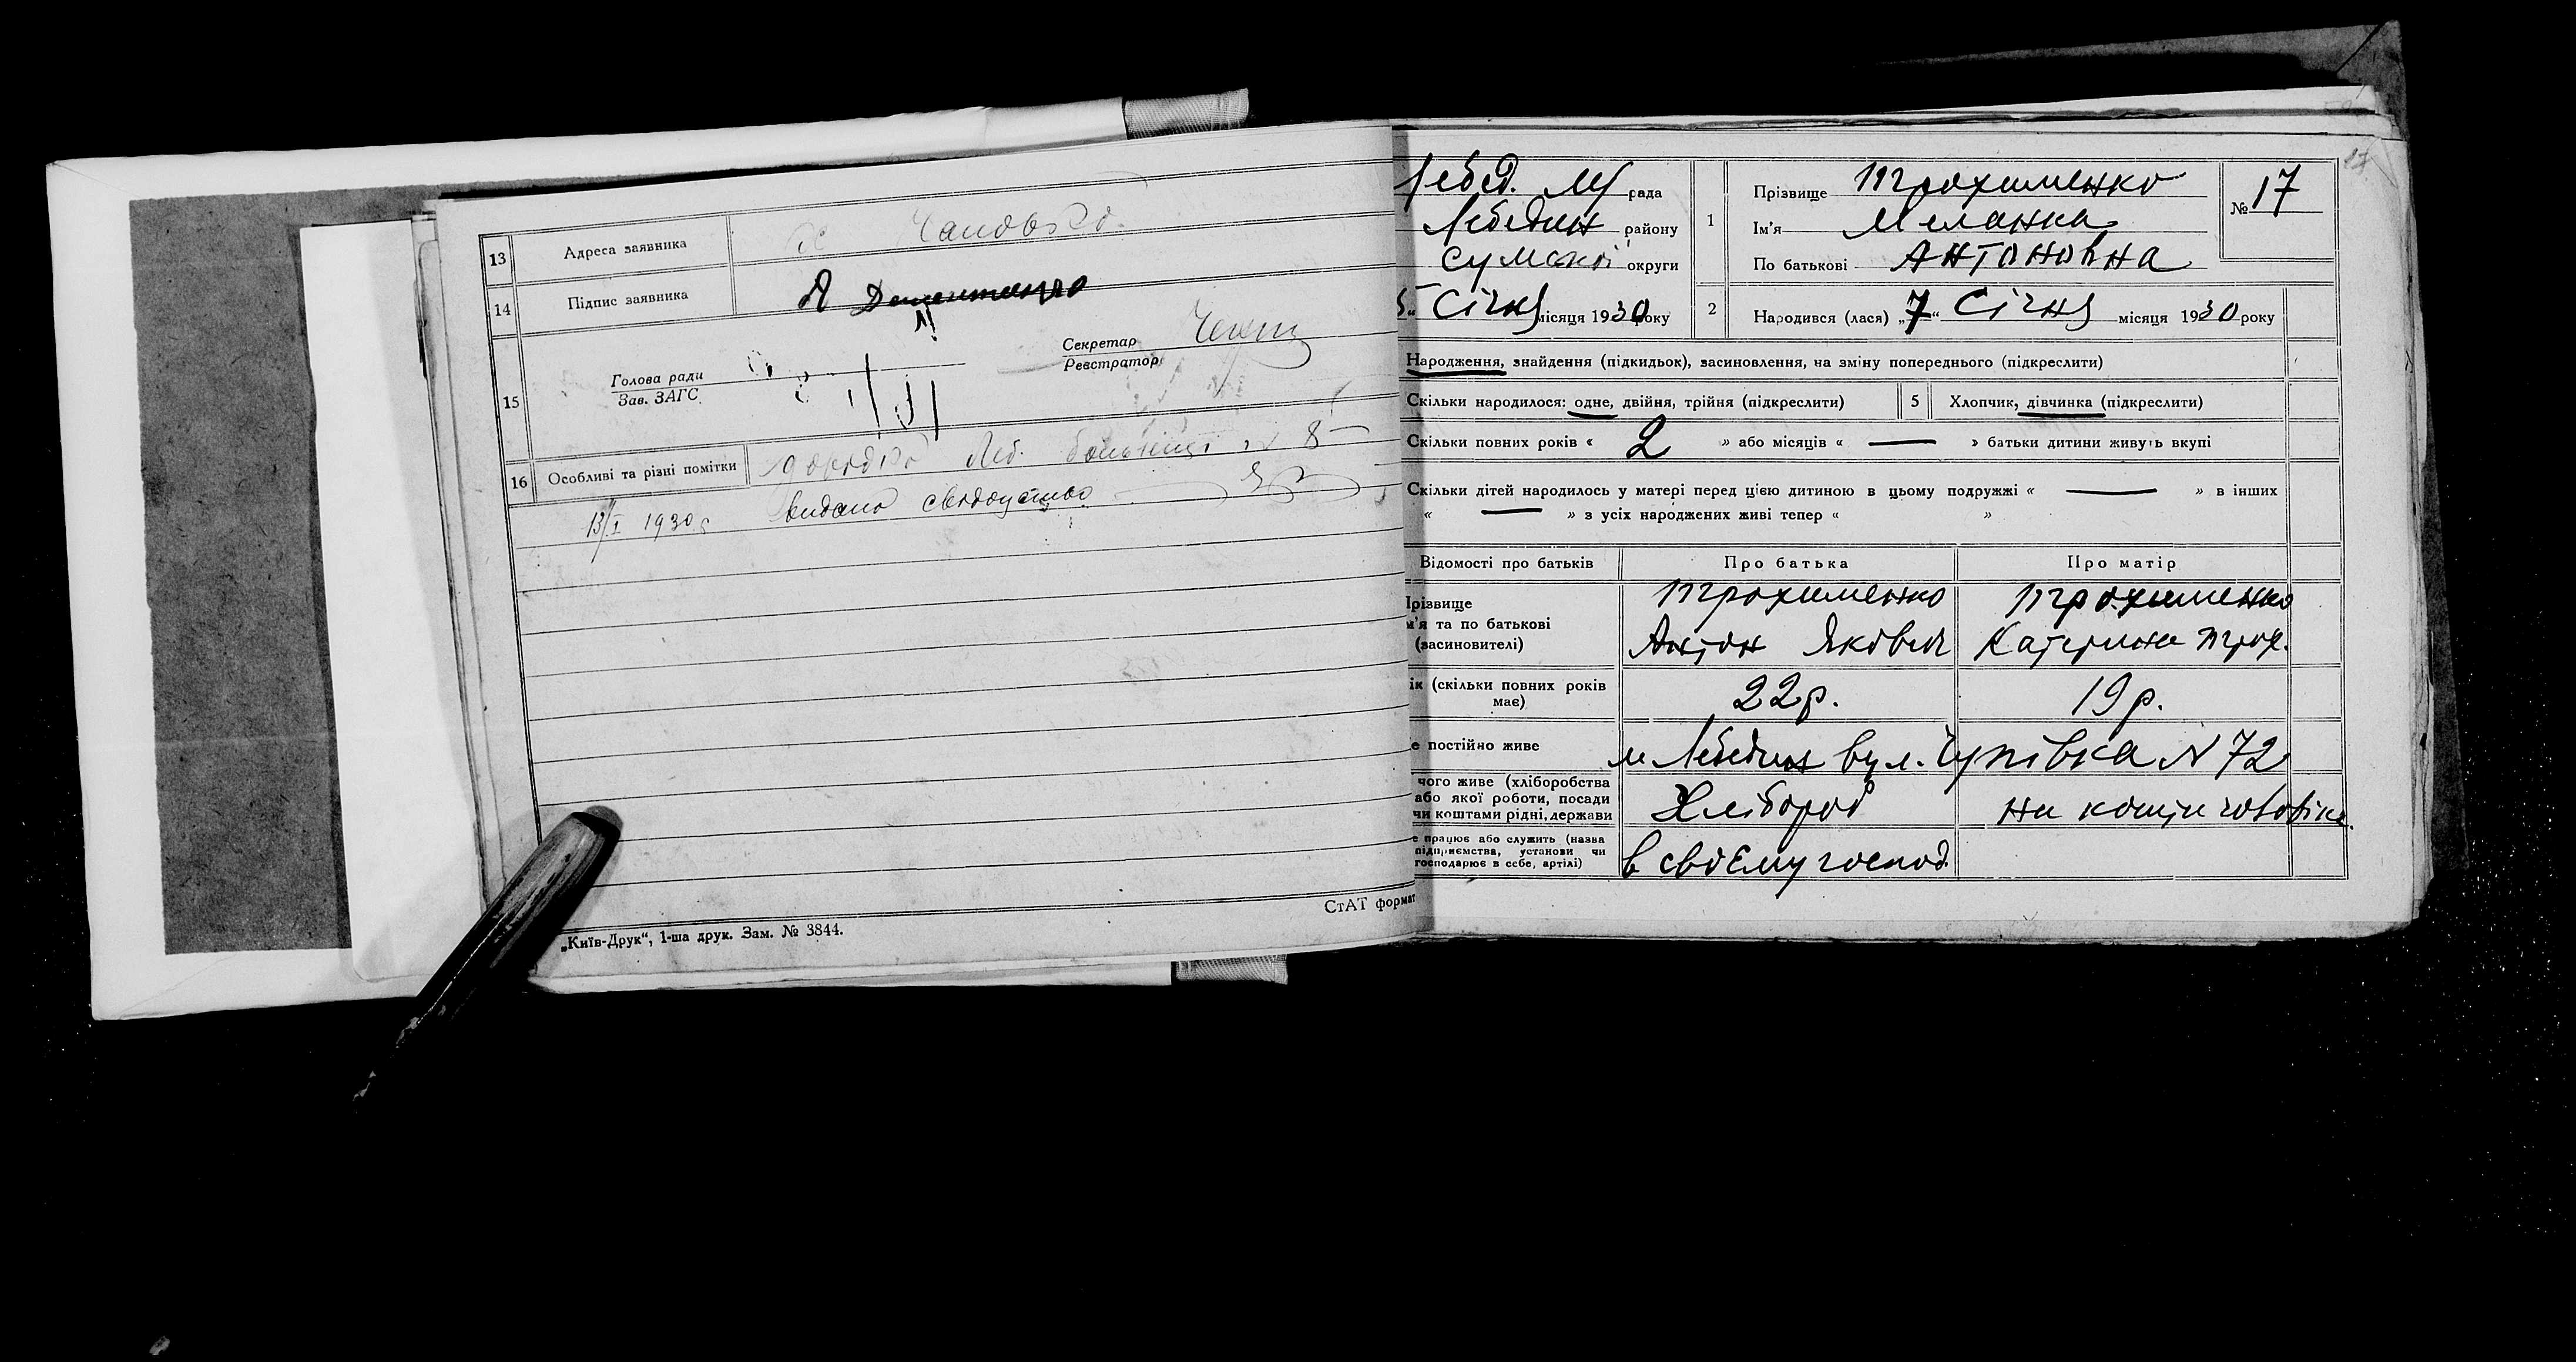 13 Адреса заявника
14 Підпис заявника
15 Голова ради
Зав. ЗАГС.
Секретар
Реєстратор
16 Особливі та різні помітки
13/I 1930 р видано свідоцтво
„Київ-Друк“, 1-ша друк. Зам. № 3844.
СтАТ формат
Лебед. рада
Лебедин району
Сумської округи
Січня місяця 1930 року
1 Прізвище Трохименко
Ім'я Меланка
По батькові Антоновна
№ 17
2 Народився (лася) „7“ Січня місяця 1930 року
Народження, знайдення (підкидьок), засиновлення, на зміну попереднього (підкреслити)
Скільки народилося: одне, двійня, трійня (підкреслити) 5 Хлопчик, дівчинка (підкреслити)
Скільки повних років « 2 » або місяців « — » батьки дитини живуть вкупі
Скільки дітей народилось у матері перед цією дитиною в цьому подружжі « — » в інших
« — » з усіх народжених живі тепер « »
Відомості про батьків Про батька Про матір
Прізвище Трохименко Трохименко
м'я та по батькові
(засиновителі) Антон Яковл Катерина Трох.
ік (скільки повних років
має) 22 р. 19 р.
е постійно живе м Лебедин вул. Чупівка N 72
чого живе (хліборобства
або якої роботи, посади
чи коштами рідні, держави Хлібороб на кошти чоловіка.
е працює або служить (назва
підприємства, установи чи
господарює в себе, артілі) в своєму господ.